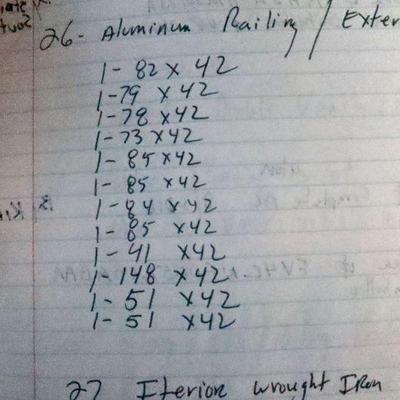 26- Aluminum Railing / Exter
1- 82 x 42
1- 79 x 42
1- 78 x 42
1- 73 x 42
1- 85 x 42
1- 85 x 42
1- 84 x 42
1- 85 x 42
1- 41 x 42
1- 148 x 42
1- 51 x 42
1- 51 x 42
27 Iterior wrought Iron